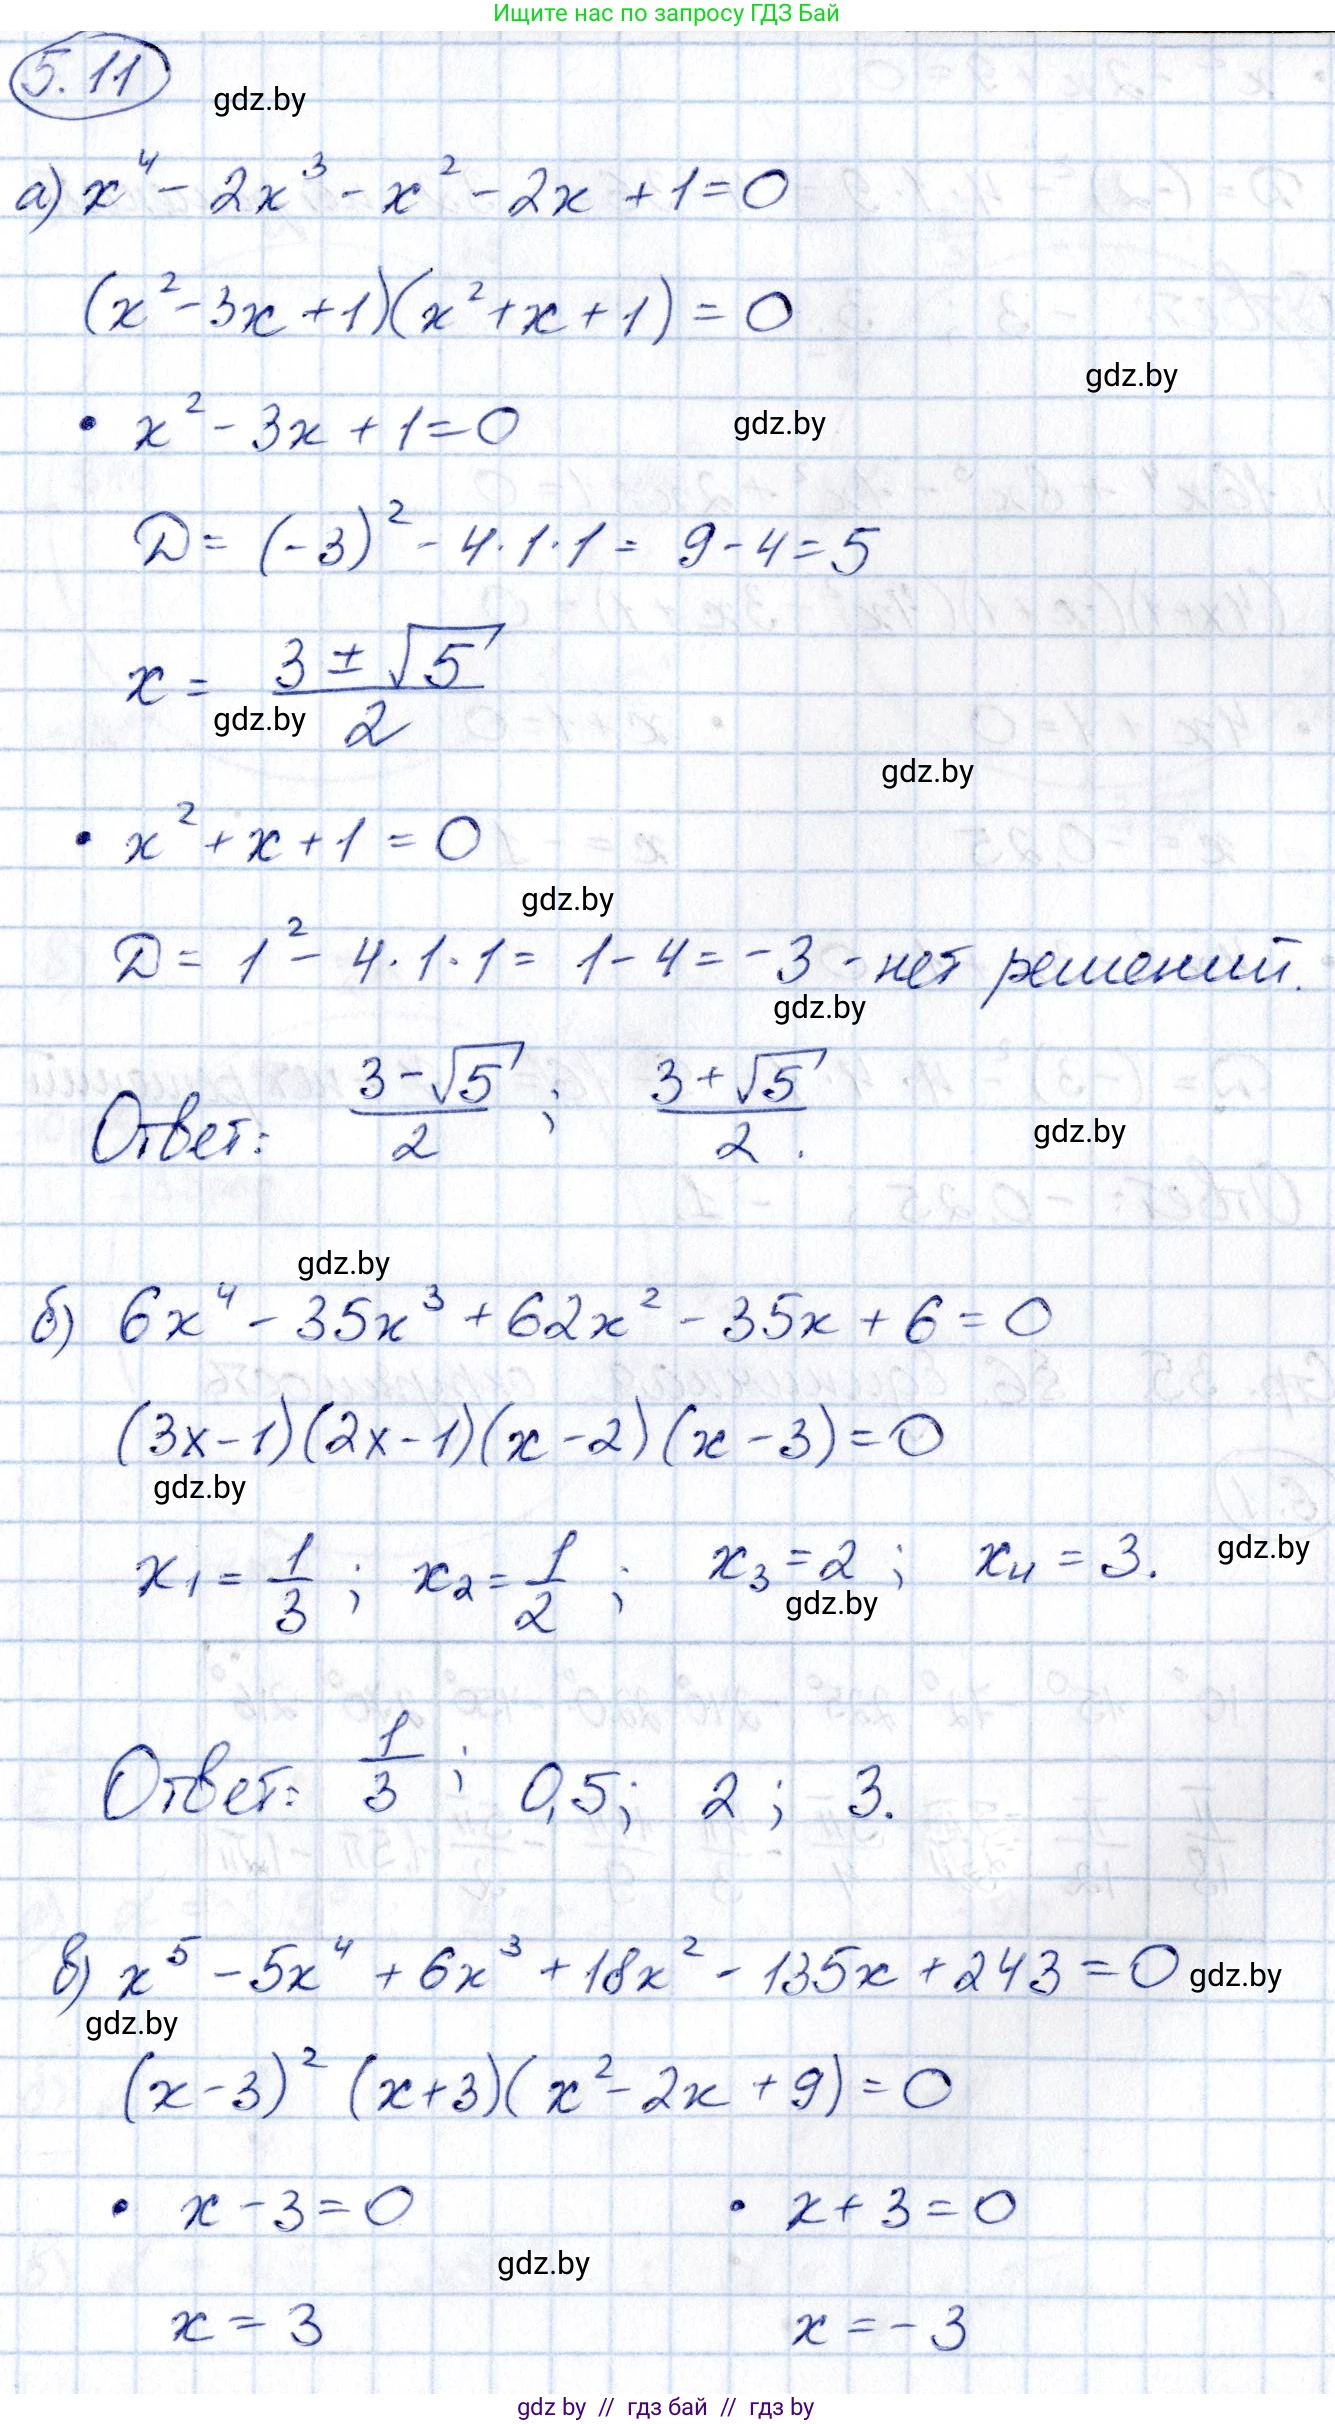 Ищите нас по запросу ГДЗ Бай
5.11
gdz.by
а) x⁴ - 2x³ - x² - 2x + 1 = 0
(x² - 3x + 1)(x² + x + 1) = 0
gdz.by
• x² - 3x + 1 = 0
gdz.by
D = (-3)² - 4·1·1 = 9 - 4 = 5
x = (3 ± √5)/2
gdz.by
gdz.by
• x² + x + 1 = 0
gdz.by
D = 1² - 4·1·1 = 1 - 4 = -3 - нет решений.
gdz.by
Ответ: (3 - √5)/2 ; (3 + √5)/2 .
gdz.by
gdz.by
б) 6x⁴ - 35x³ + 62x² - 35x + 6 = 0
(3x - 1)(2x - 1)(x - 2)(x - 3) = 0
gdz.by
x₁ = 1/3 ; x₂ = 1/2 ; x₃ = 2 ; x₄ = 3.
gdz.by
gdz.by
Ответ: 1/3 ; 0,5 ; 2 ; 3.
в) x⁵ - 5x⁴ + 6x³ + 18x² - 135x + 243 = 0
gdz.by
gdz.by
(x - 3)² (x + 3)(x² - 2x + 9) = 0
• x - 3 = 0 • x + 3 = 0
gdz.by
x = 3 x = -3
gdz by // гдз бай // gdz by